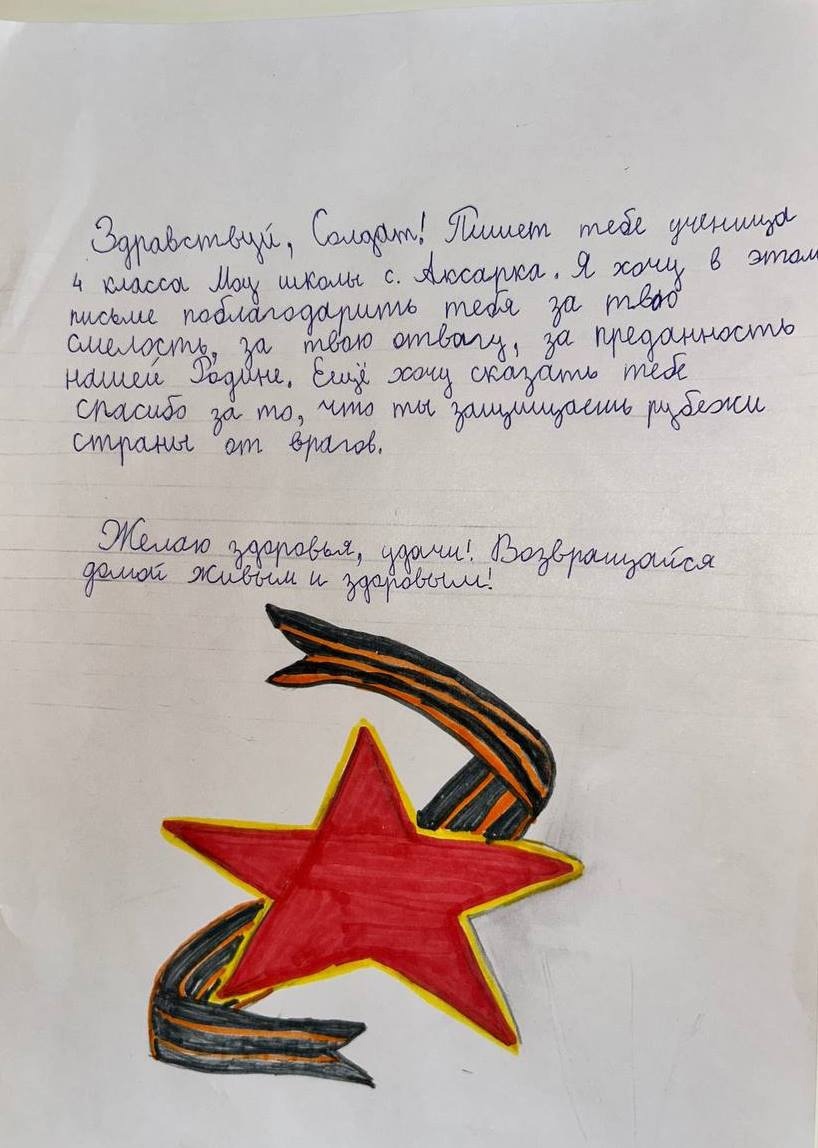 Здравствуй, Солдат! Пишет тебе ученица
4 класса Моу школы с. Аксарка. Я хочу в этом
письме поблагодарить тебя за твою
смелость, за твою отвагу, за преданность
нашей Родине. Ещё хочу сказать тебе
спасибо за то, что ты защищаешь рубежи
страны от врагов.
Желаю здоровья, удачи! Возвращайся
домой живым и здоровым!